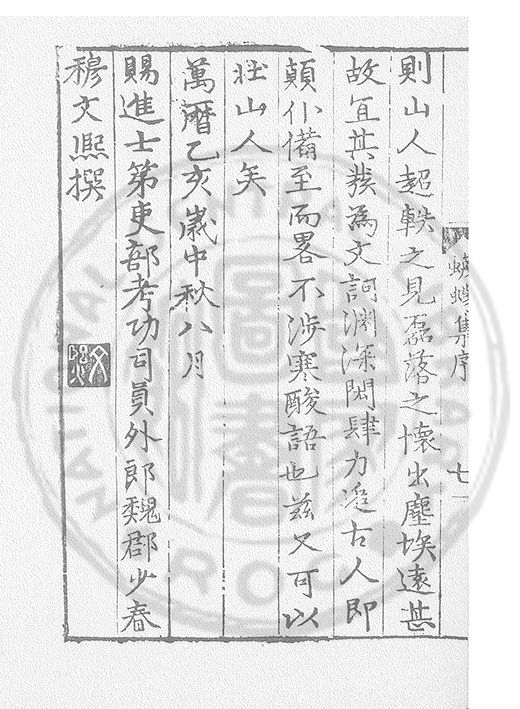 蠛蠓集序
七
則山人超軼之見磊落之懷出塵埃遠甚
故宜其發為文訶淵深閎肆力追古人即
顛仆備至而畧不涉寒酸語也茲又可以
壯山人矣
萬曆乙亥歲中秋八月
賜進士第吏部考功司員外郎魏郡少春
穆文熙撰